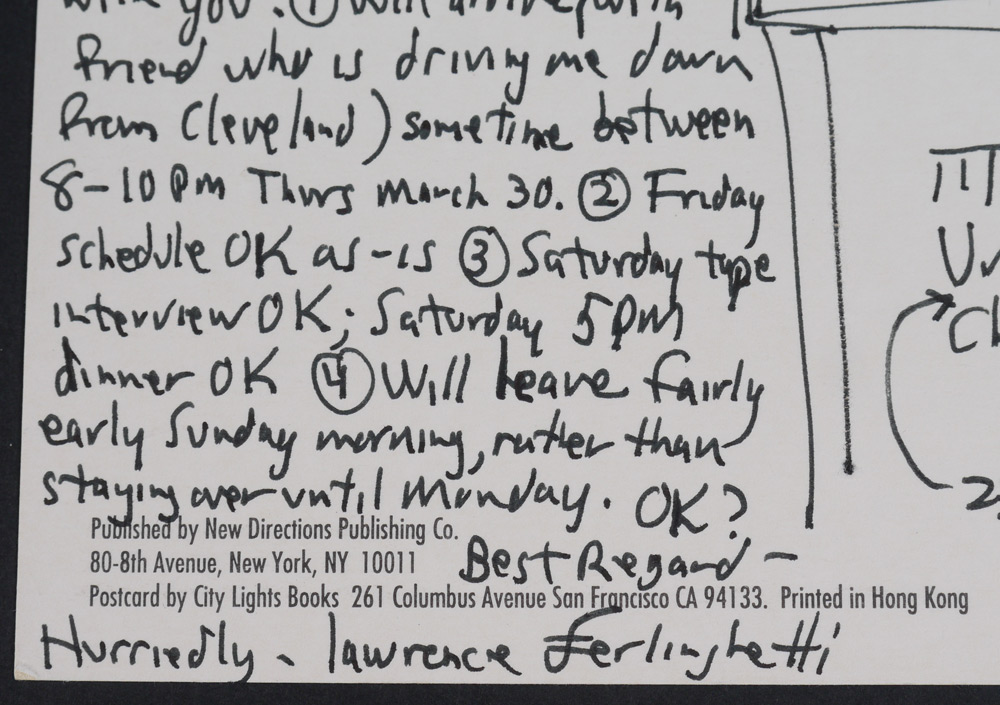 with you. ① Will arrive, with
friend who is driving me down
from Cleveland) sometime between
8-10 PM Thurs March 30. ② Friday
schedule OK as-is ③ Saturday type
interview OK; Saturday 5 PM
dinner OK ④ Will leave fairly
early Sunday morning, rather than
staying over until Monday. OK?
Published by New Directions Publishing Co.
80-8th Avenue, New York, NY 10011
Best Regard —
Postcard by City Lights Books 261 Columbus Avenue San Francisco CA 94133. Printed in Hong Kong
Hurriedly - Lawrence Ferlinghetti